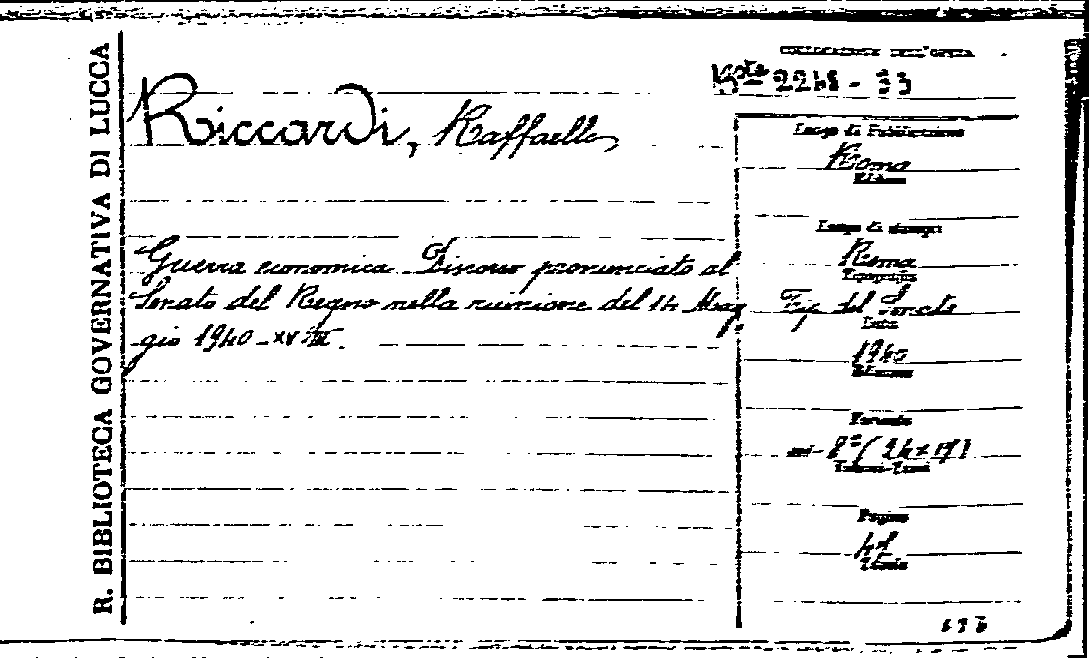 R. BIBLIOTECA GOVERNATIVA DI LUCCA
COLLOCAZIONE DELL'OPERA
Riccardi, Raffaello
Guerra economica. Discorso pronunciato al
Senato del Regno nella riunione del 14 Mag-
gio 1940-XVIII.
Luogo di Pubblicazione
Roma
Luogo di stampa
Roma
Tipografia
Tip. del Senato
Data
1940
Edizione
Formato
in-8° (24x17)
Pagine